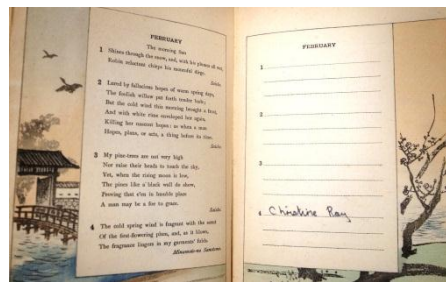 FEBRUARY
The morning Sun
1 Shines through the snow, and, with his plumes all wet,
Robin reluctant chirps his mournful dirge.
Saisho.
2 Lured by fallacious hopes of warm spring days,
The foolish willow put forth tender buds;
But the cold wind this morning brought a frost,
And with white rime enveloped low again,
Killing her nascent hopes: so when a man
Hopes, plans, or acts, a thing before its time.
Saisho.
3 My pine-trees are not very high
Nor raise their heads to touch the sky,
Yet, when the rising moon is low,
The pines like a black wall do show,
Proving that e'en in humble place
A man may be a foe to grace.
Saisho.
4 The cold spring wind is fragrant with the scent
Of the first-flowering plum, and, as it blows,
The fragrance lingers in my garments' folds.
FEBRUARY
1
2
3
4 Christine Ray